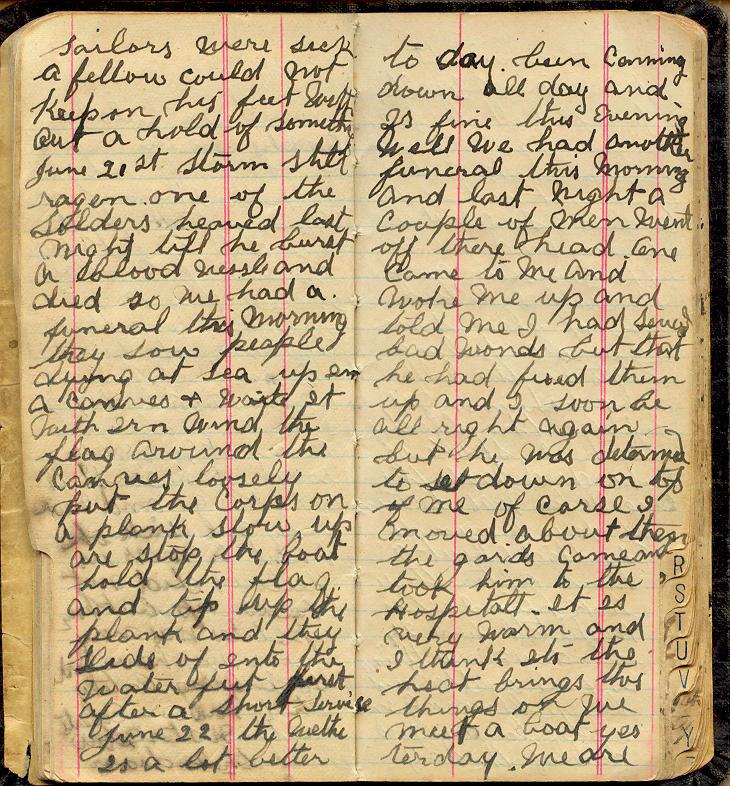 sailors were sick
a fellow could not
keep on his feet with
out a hold of somethi
June 21st storm still
ragen. one of the
Solders heaved last
night till he burst
a blood vessle and
died so we had a
funeral this Morning
they sow people
dying at sea up in
a canves + waite it
with irn wind the
flag around the
canves loosely
put the Corps on
a plank slow up
are stop the boat
hold the flag
and tip up the
plank and they
slide of into the
water feet first
after a short servise
June 22 the wethe
is a lot better
to day. been Conming
down all day and
is fine this Evening
Well We had another
funeral this Morning
and last Night a
Couple of Men went
off there head. One
Came to Me and
Woke Me up and
told Me I had
bad Wonds but that
he had fixed them
up and I soon be
all right again
but he was determd
to set down on top
of me of Carse I
moved about then
the gards Came and
took him to the
Hospitall. it is
very Warm and
I think its the
heat brings this
things on We
meet a boat yes
terday. We are
R
S
T
U
V
X